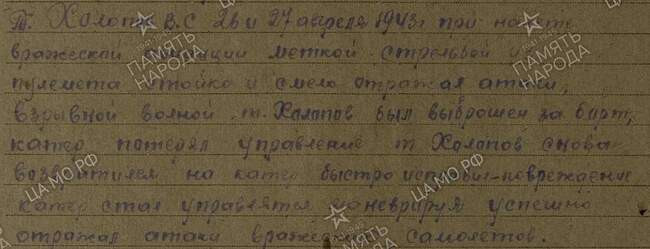 Т. Холопов В.С 26 и 27 апреля 1943г при налете
вражеской авиации меткой стрельбой из
пулемета стойко и смело отражал атаки,
взрывной волной т. Холопов был выброшен за борт,
катер потерял управление т Холопов снова
возвратился на катер быстро исправил повреждение
катер стал управлятся маневрируя успешно
отражал атаки вражеских самолетов.
ПАМЯТЬ НАРОДА
ЦА МО РФ
ПАМЯТЬ НАРОДА
ЦА МО РФ
ЦА МО РФ
ПАМЯТЬ НАРОДА